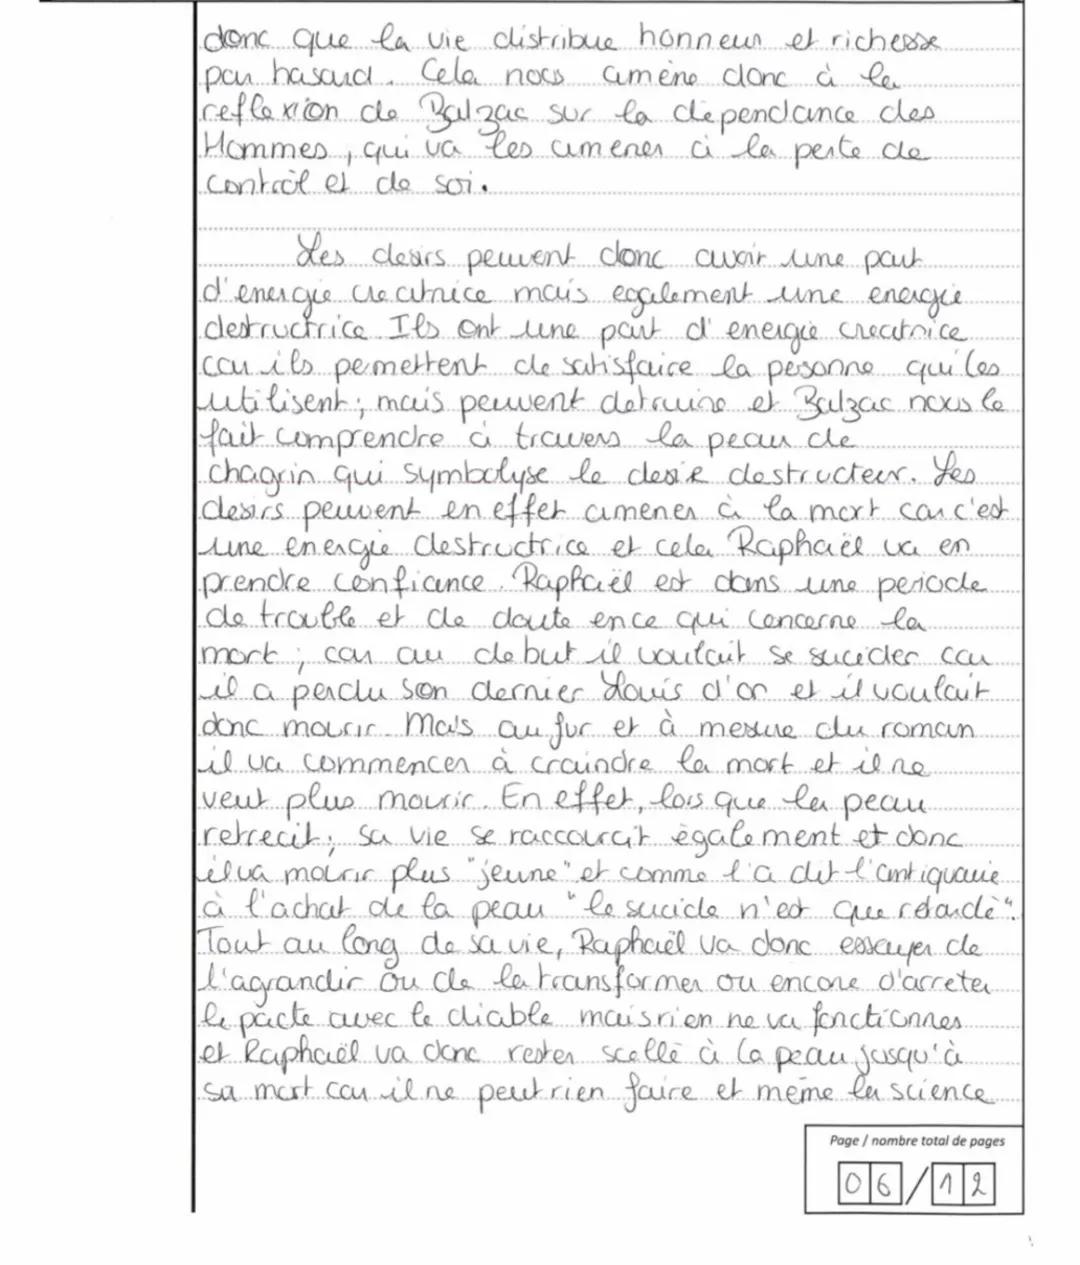 donc que la vie distribue honneur et richesse
par hasard. Cela nous amène donc à la
reflexion de Balzac sur la dépendance des
Hommes, qui va les amener à la perte de
contrôl et de soi.
Les desirs peuvent donc avoir une part
d'energie creatrice mais egalement une energie
destructrice. Ils ont une part d'energie creatrice
car ils permettent de satisfaire la personne qui les
utilisent ; mais peuvent detruire et Balzac nous le
fait comprendre à travers la peau de
chagrin qui symbolyse le desir destructeur. Les
desirs peuvent en effet amener à la mort car c'est
une energie destructrice et cela Raphaël va en
prendre confiance. Raphaël est dans une periode
de trouble et de doute ence qui concerne la
mort ; car au debut il voulait se sucider car
il a perdu son dernier Louis d'or et il voulait
donc mourir. Mais au fur et à mesure du roman
il va commencer à craindre la mort et il ne
veut plus mourir. En effet, lors que la peau
retrecit ; sa vie se raccourçit également et donc
il va mourir plus "jeune" et comme l'a dit l'antiquaire
à l'achat de la peau "le sucide n'est que retardé".
Tout au long de sa vie, Raphaël va donc essayer de
l'agrandir ou de la transformer ou encore d'arreter
le pacte avec le diable mais rien ne va fonctionner
et Raphaël va donc rester scellé à la peau jusqu'à
sa mort car il ne peut rien faire et même la science
Page / nombre total de pages
06/12